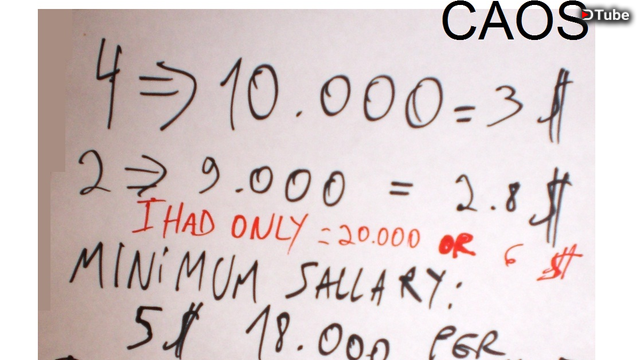 CAOS
DTube
4 ⇒ 10.000 = 3 $
2 ⇒ 9.000 = 2.8 $
I HAD ONLY = 20.000 OR 6 $
MINIMUM SALLARY:
5 $ 18.000 PER